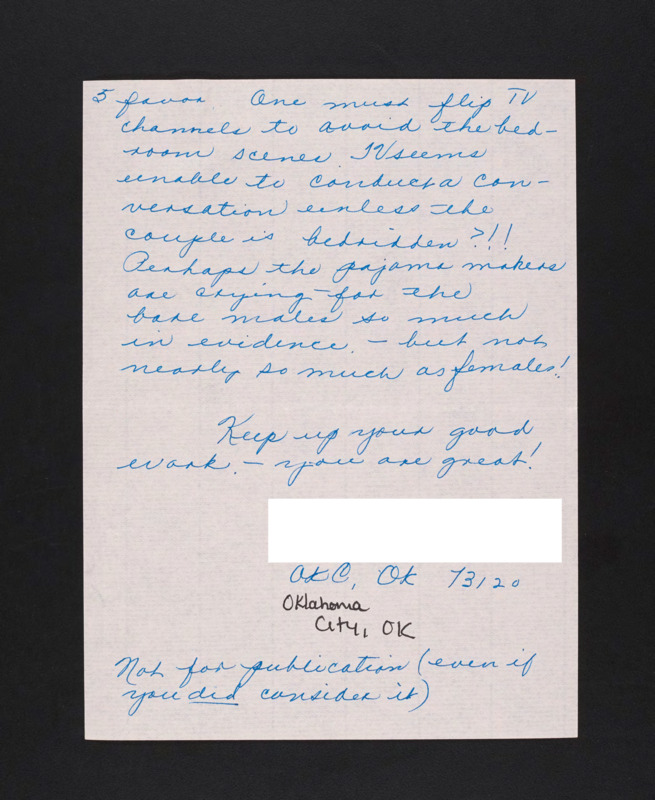 5 favor One must flip TV
channels to avoid the bed-
room scenes. TV seems
unable to conduct a con-
versation unless the
couple is bedridden?!!
Perhaps the pajama makers
are crying for the
bare males so much
in evidence. — but not
nearly so much as females!
Keep up your good
work. — you are great!
OKC, OK 73120
Oklahoma
City, OK
Not for publication (even if
you did consider it)